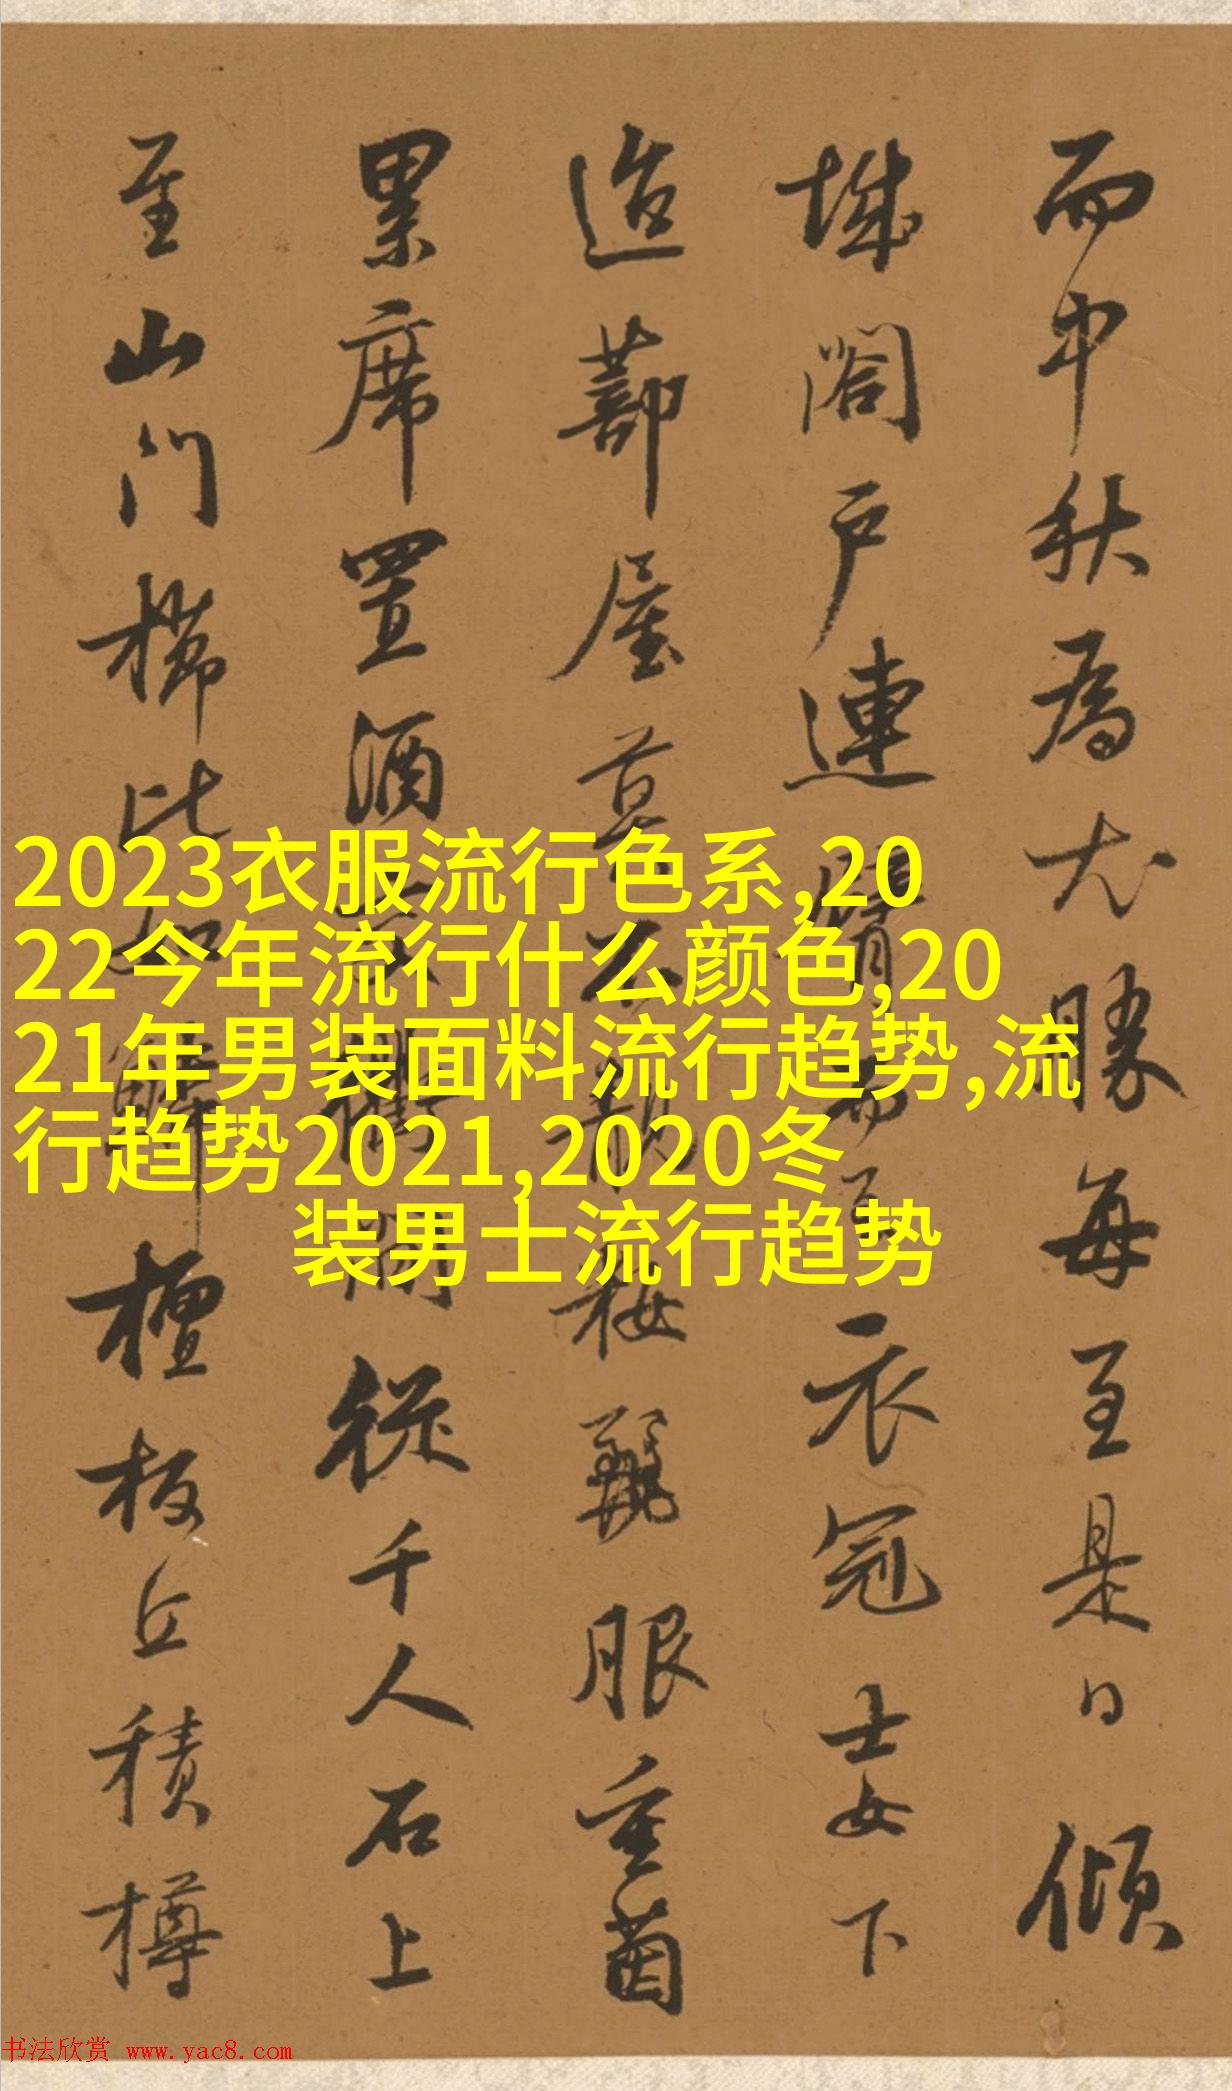 而中秋為尤勝每至是日傾
城閤戶連臂而至衣冠士女下
迨蔀屋莫不靚粧麗服重茵
累席置酒交衢間從千人石上
至山門櫛比如鱗檀板丘積樽
2023衣服流行色系,20
22今年流行什么颜色,20
21年男装面料流行趋势,流
行趋势2021,2020冬
装男士流行趋势
书法欣赏 www.yac8.com